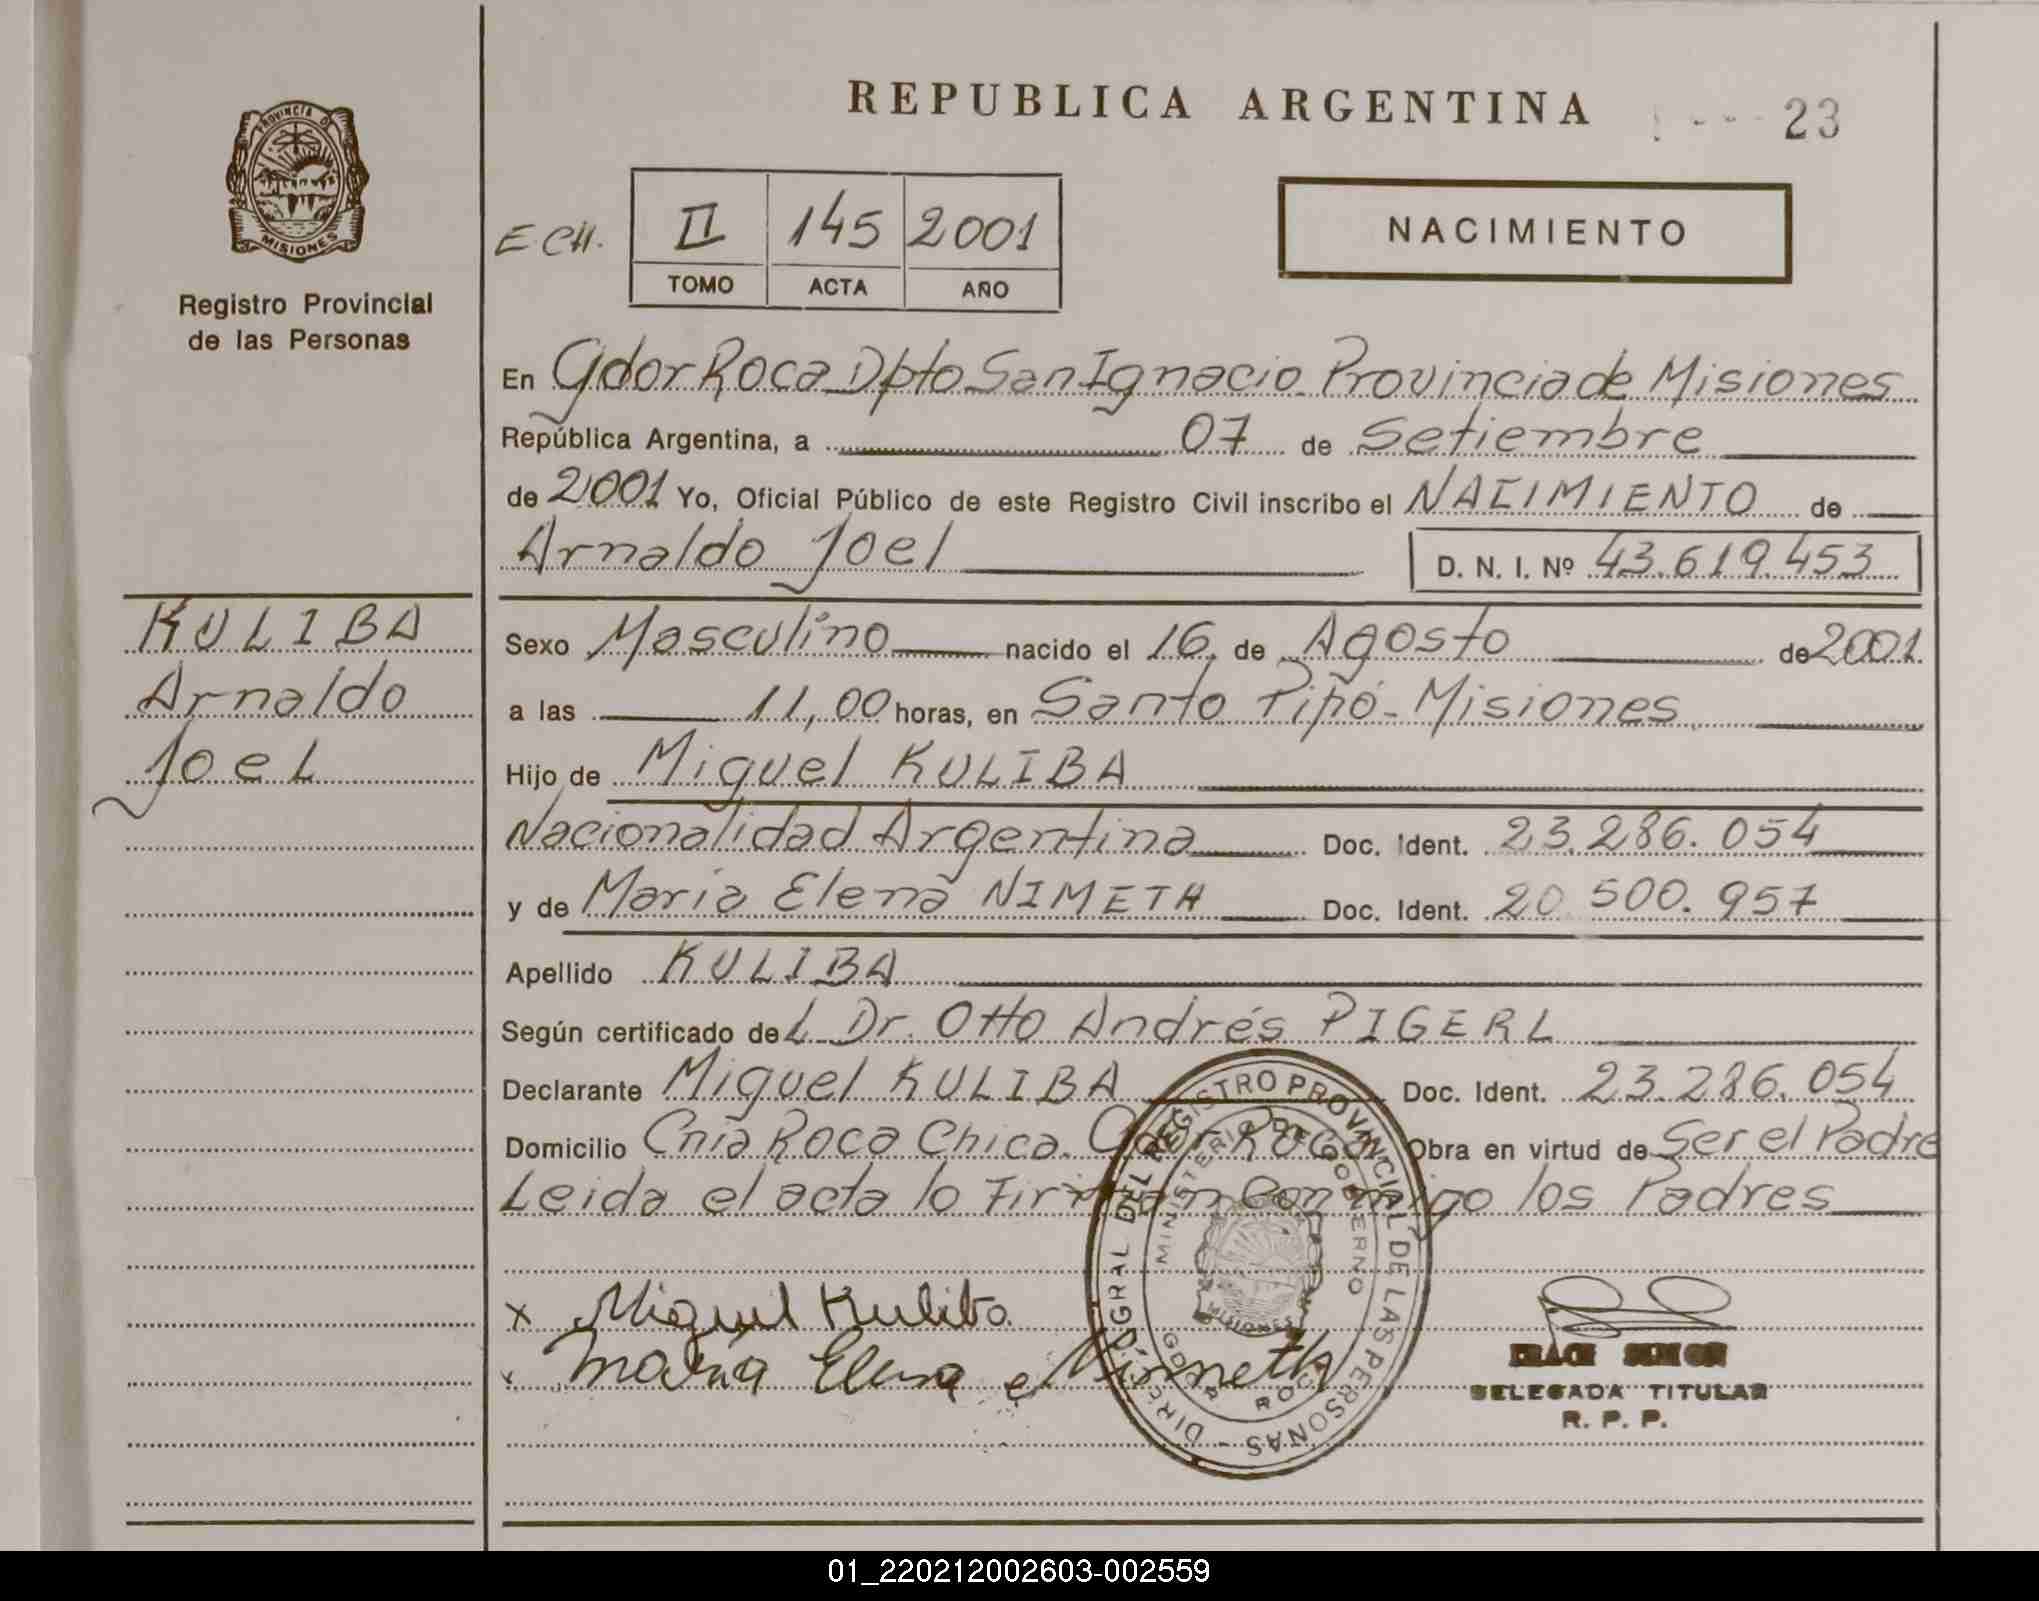 REPUBLICA ARGENTINA
23
PROVINCIA D
MISIONES
Registro Provincial
de las Personas
II 145 2001
TOMO ACTA AÑO
NACIMIENTO
En Gdor Roca Dpto San Ignacio Provincia de Misiones
República Argentina, a 07 de Setiembre
de 2001 Yo, Oficial Público de este Registro Civil inscribo el NACIMIENTO de
Arnaldo Joel
D. N. I. Nº 43.619.453
KULIBA
Arnaldo
Joel
Sexo Masculino nacido el 16 de Agosto de 2001
a las 11,00 horas, en Santo Pipó - Misiones
Hijo de Miguel KULIBA
Nacionalidad Argentina Doc. Ident. 23.286.054
y de Maria Elena NIMETH Doc. Ident. 20 500.957
Apellido KULIBA
Según certificado del Dr. Otto Andrés PIGERL
Declarante Miguel KULIBA Doc. Ident. 23.286.054
Domicilio Cnia Roca Chica. Gdor Roca Obra en virtud de Ser el Padre
Leida el acta lo Firman Conmigo los Padres
x Miguel Kuliba
Maria Elena Nimeth
DIREC. GRAL DEL REGISTRO PROVINCIAL DE LAS PERSONAS -
MINISTERIO DE GOBIERNO
MISIONES
GDOR ROCA
DELEGADA TITULAR
R. P. P.
01_220212002603-002559